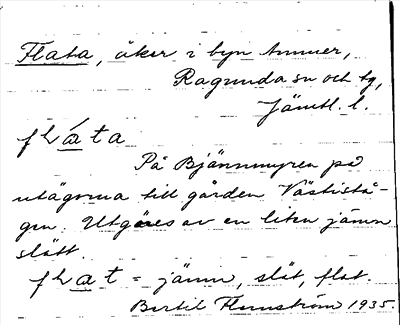 Flata, åker i byn Ammer,
Ragunda sn och tg,
Jämtl. l.
flata
På Bjännmyren på
utägorna till gården Västistå-
gen. Utgöres av en liten jämn
slätt.
flat = jämn, slät, flat.
Bertil Flemström 1935.